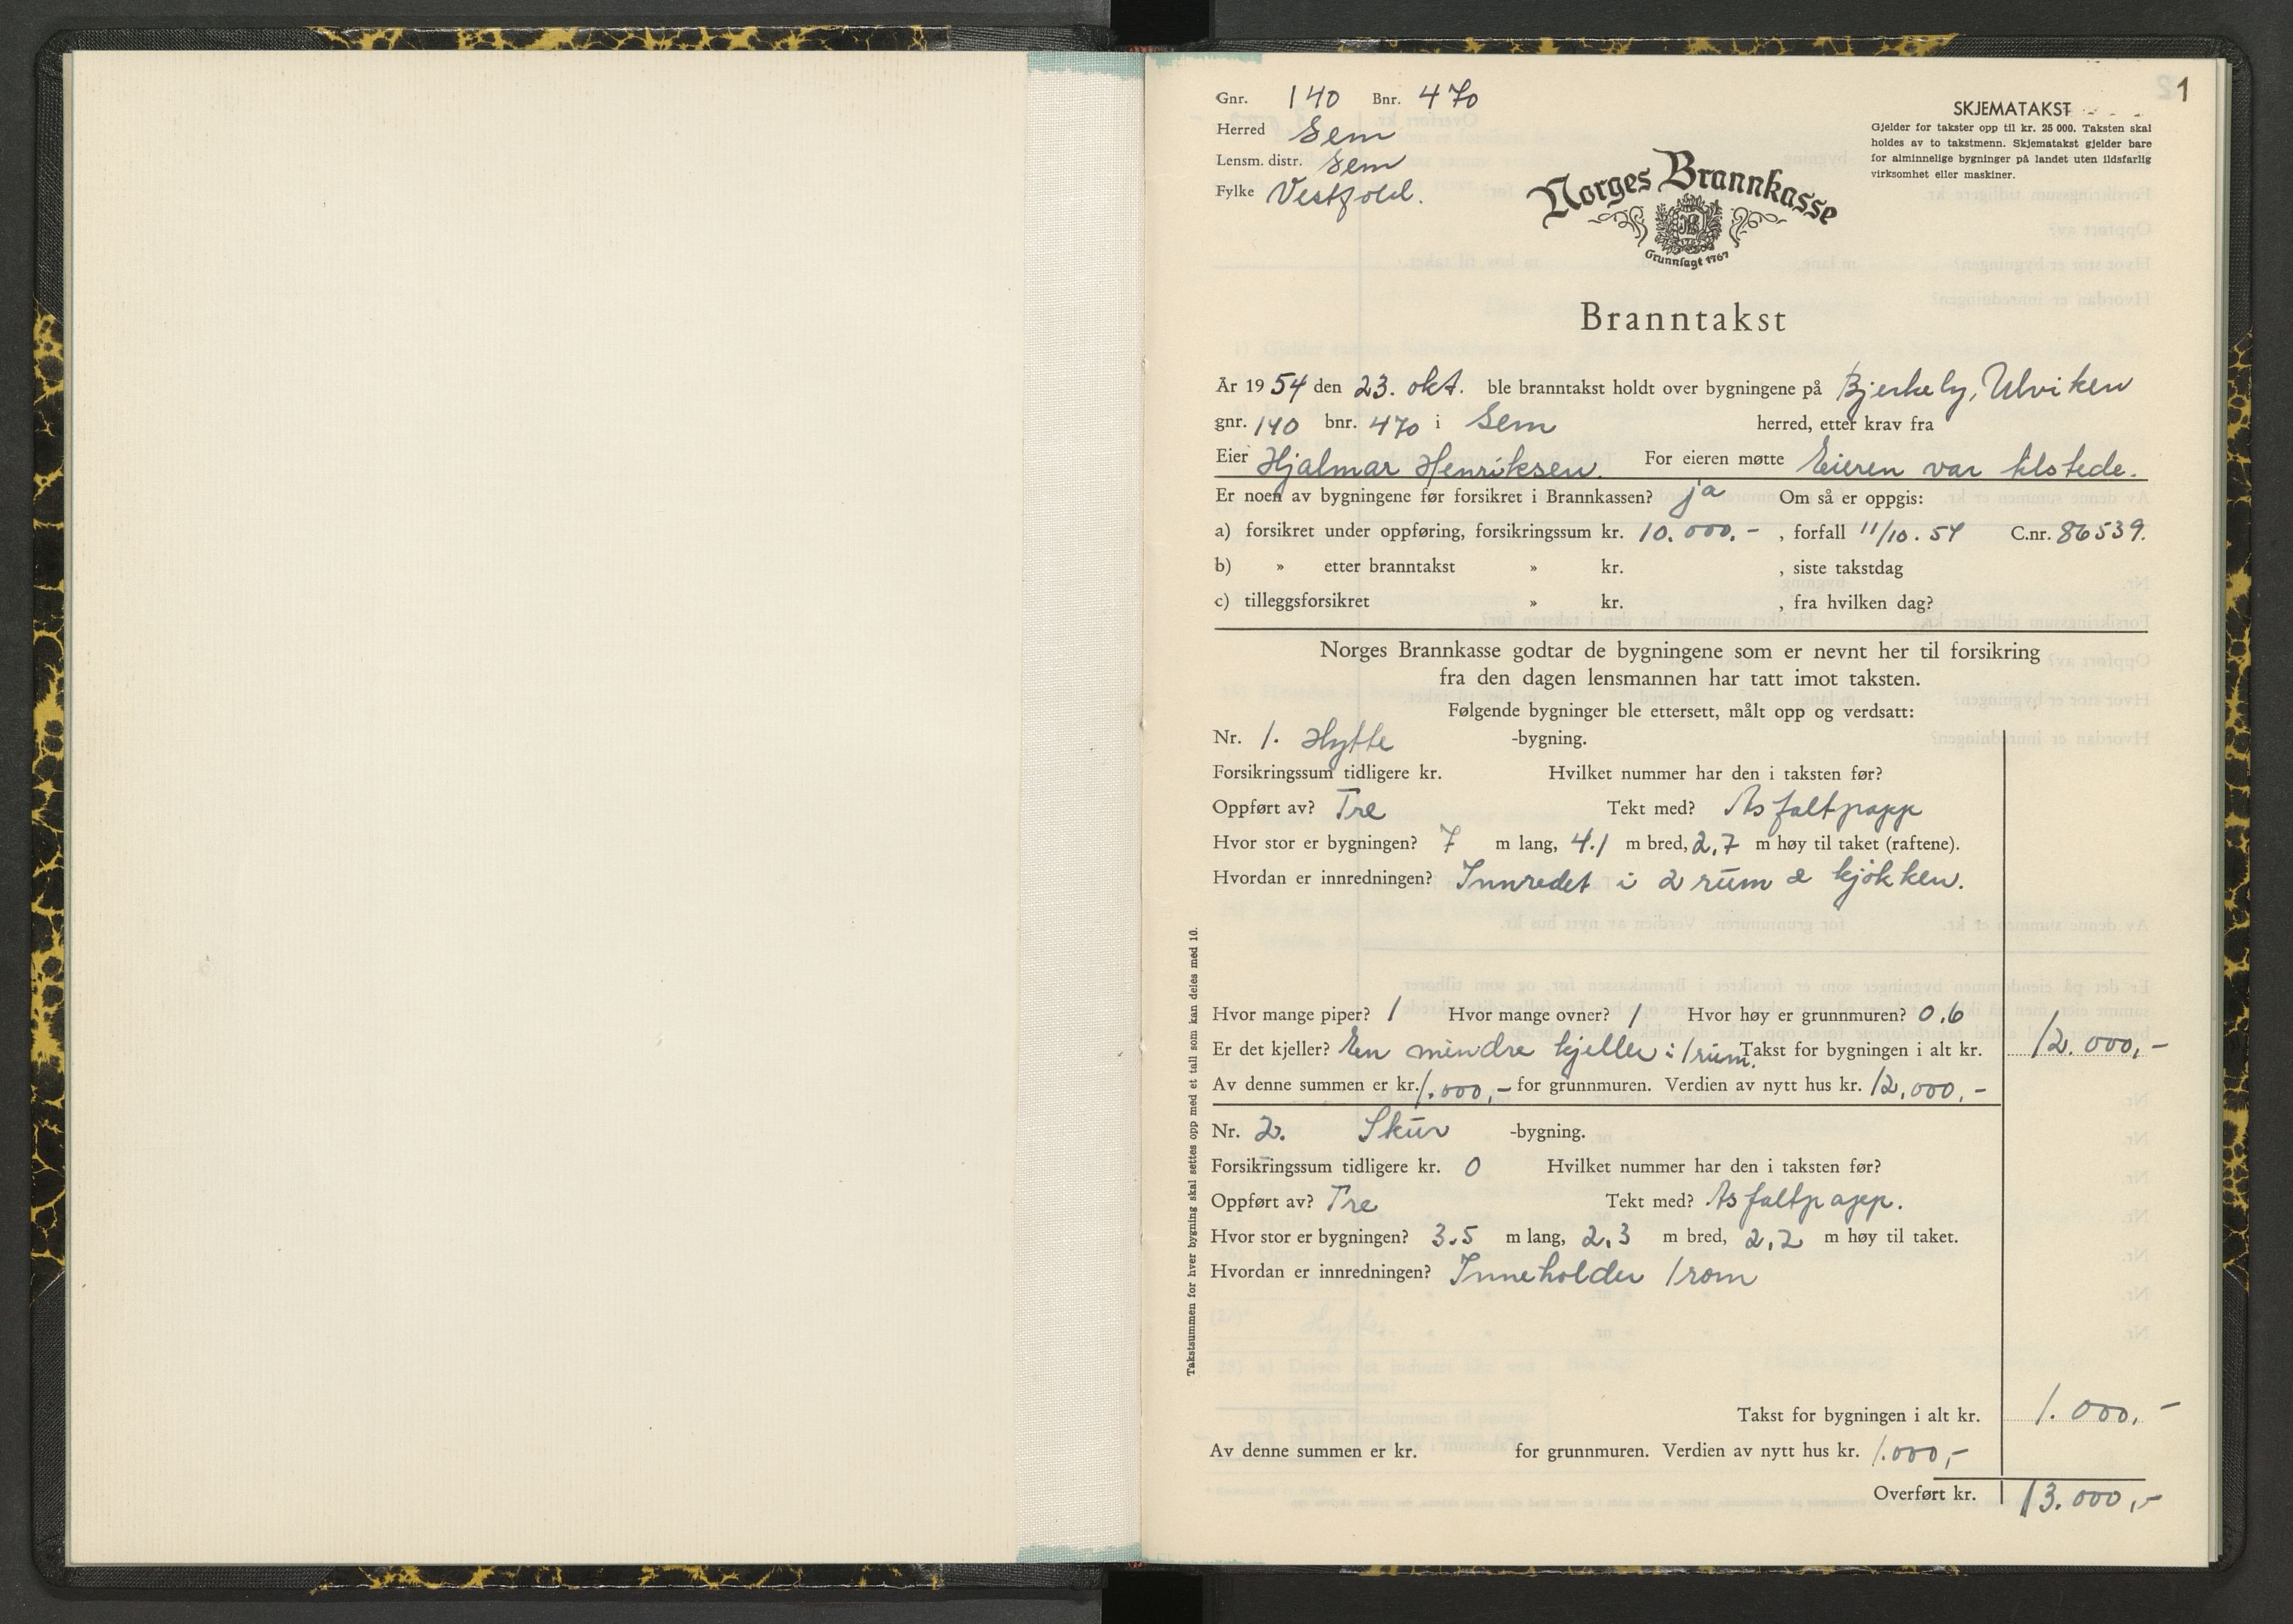 1
Gnr. 140 Bnr. 470
Herred Sem
Lensm. distr. Sem
Fylke Vestfold.
SKJEMATAKST
Gjelder for takster opp til kr. 25 000. Taksten skal
holdes av to takstmenn. Skjematakst gjelder bare
for alminnelige bygninger på landet uten ildsfarlig
virksomhet eller maskiner.
Norges Brannkasse
NB
Grunnlagt 1767
Branntakst
År 1954 den 23. okt. ble branntakst holdt over bygningene på Bjerkely, Ulviken
gnr. 140 bnr. 470 i Sem herred, etter krav fra
Eier Hjalmar Henriksen. For eieren møtte Eieren var tilstede.
Er noen av bygningene før forsikret i Brannkassen? ja Om så er oppgis:
a) forsikret under oppføring, forsikringssum kr. 10.000.- , forfall 11/10. 54 C.nr. 86539.
b) » etter branntakst » kr. , siste takstdag
c) tilleggsforsikret » kr. , fra hvilken dag?
Norges Brannkasse godtar de bygningene som er nevnt her til forsikring
fra den dagen lensmannen har tatt imot taksten.
Følgende bygninger ble ettersett, målt opp og verdsatt:
Nr. 1. Hytte -bygning.
Forsikringssum tidligere kr. Hvilket nummer har den i taksten før?
Oppført av? Tre Tekt med? Asfaltpapp
Hvor stor er bygningen? 7 m lang, 4.1 m bred, 2,7 m høy til taket (raftene).
Hvordan er innredningen? Innredet i 2 rum & kjøkken.
Hvor mange piper? 1 Hvor mange ovner? 1 Hvor høy er grunnmuren? 0.6
Er det kjeller? En mindre kjeller i 1 rum. Takst for bygningen i alt kr. 12.000,-
Av denne summen er kr. 1.000,- for grunnmuren. Verdien av nytt hus kr. 12,000,-
Nr. 2. Skur -bygning.
Forsikringssum tidligere kr. 0 Hvilket nummer har den i taksten før?
Oppført av? Tre Tekt med? Asfaltpapp.
Hvor stor er bygningen? 3.5 m lang, 2.3 m bred, 2,2 m høy til taket.
Hvordan er innredningen? Inneholder 1 rom
Takst for bygningen i alt kr. 1.000,-
Av denne summen er kr. for grunnmuren. Verdien av nytt hus kr. 1.000,-
Overført kr. 13.000,-
Takstsummen for hver bygning skal settes opp med et tall som kan deles med 10.